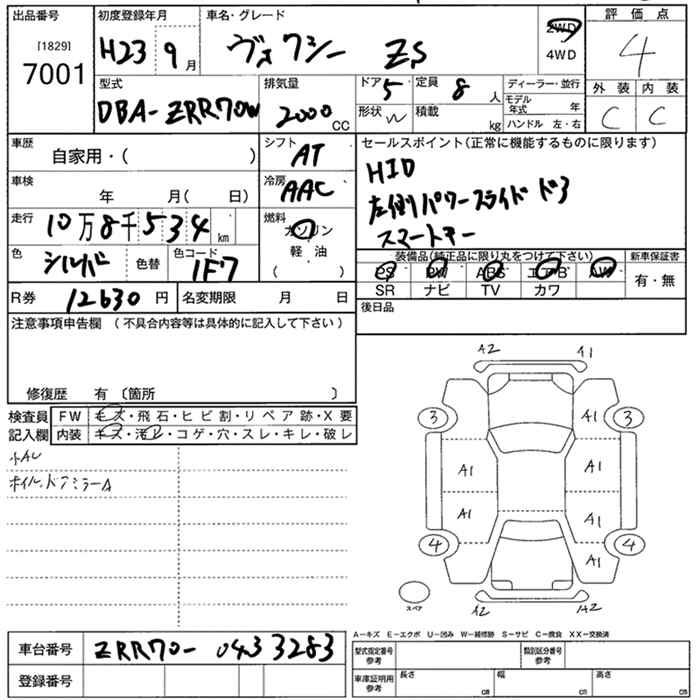 出品番号 初度登録年月 車名・グレード 2WD 評価点
[1829] 7001 H23 9月 ヴォクシー ZS 4WD 4
型式 排気量 ドア 5 定員 8人 ディーラー・並行 外装 内装
DBA-ZRR70W 2000CC 形状 W 積載 kg モデル年式 年 C C
ハンドル 左・右
車歴 シフト セールスポイント(正常に機能するものに限ります)
自家用・( ) AT HID
車検 冷房 左側パワースライドドア
年 月( 日) AAC スマートキー
走行 10万8千534km 燃料 ガソリン
軽油
( )
色 シルバー 色替 色コード 1F7
装備品(純正品に限り丸をつけて下さい) 新車保証書
PS PW ABS エアB AW 有・無
SR ナビ TV カワ
R券 12630円 名変期限 月 日 後日品
注意事項申告欄 (不具合内容等は具体的に記入して下さい)
修復歴 有 〔箇所 〕
検査員 FW キズ・飛石・ヒビ割・リペア跡・X要
記入欄 内装 キズ・汚レ・コゲ・穴・スレ・キレ・破レ
小AU
ホイル.ドアミラーA
A2 A1
3 A1 3
A1 A1
A1 A1
4 A1 4
スペア A2 A2
A−キズ E−エクボ U−凹み W−補修跡 S−サビ C−腐食 XX−交換済
車台番号 ZRR70-0433283
登録番号
型式指定番号 参考 類別区分番号 参考
車庫証明用 参考 長さ cm 幅 cm 高さ cm